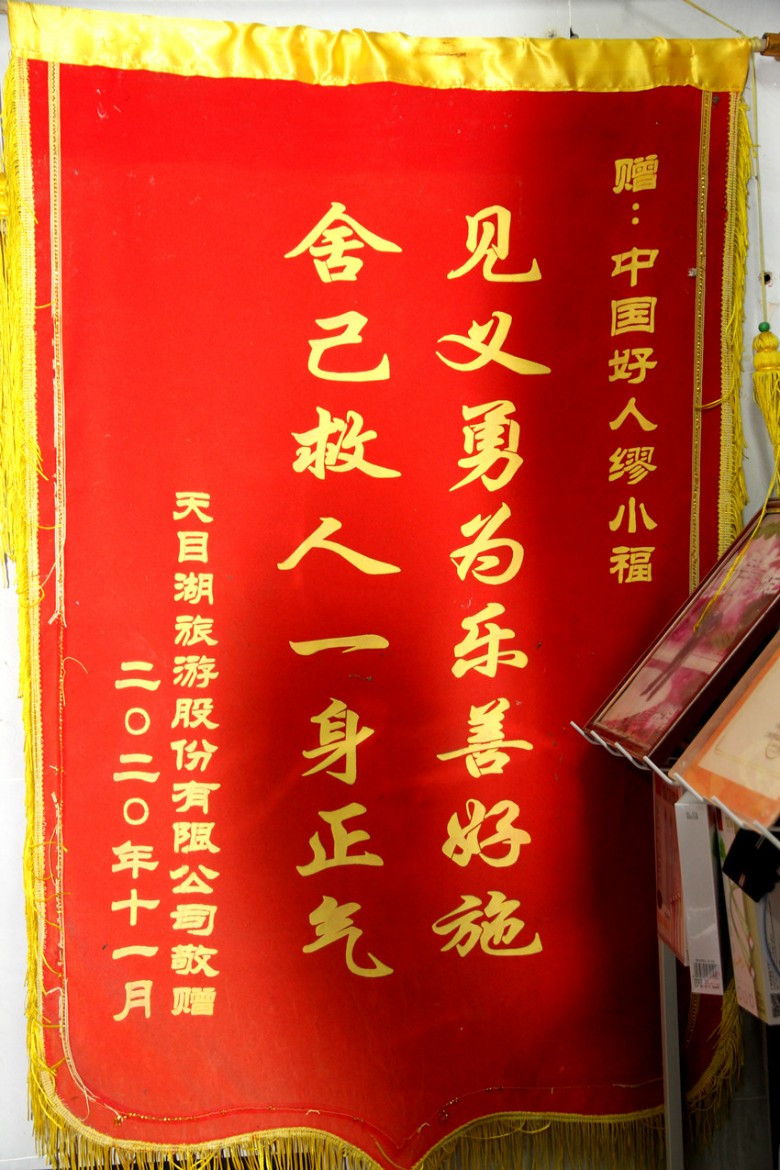 赠：中国好人缪小福
见义勇为乐善好施
舍己救人一身正气
天目湖旅游股份有限公司敬赠
二〇二〇年十一月